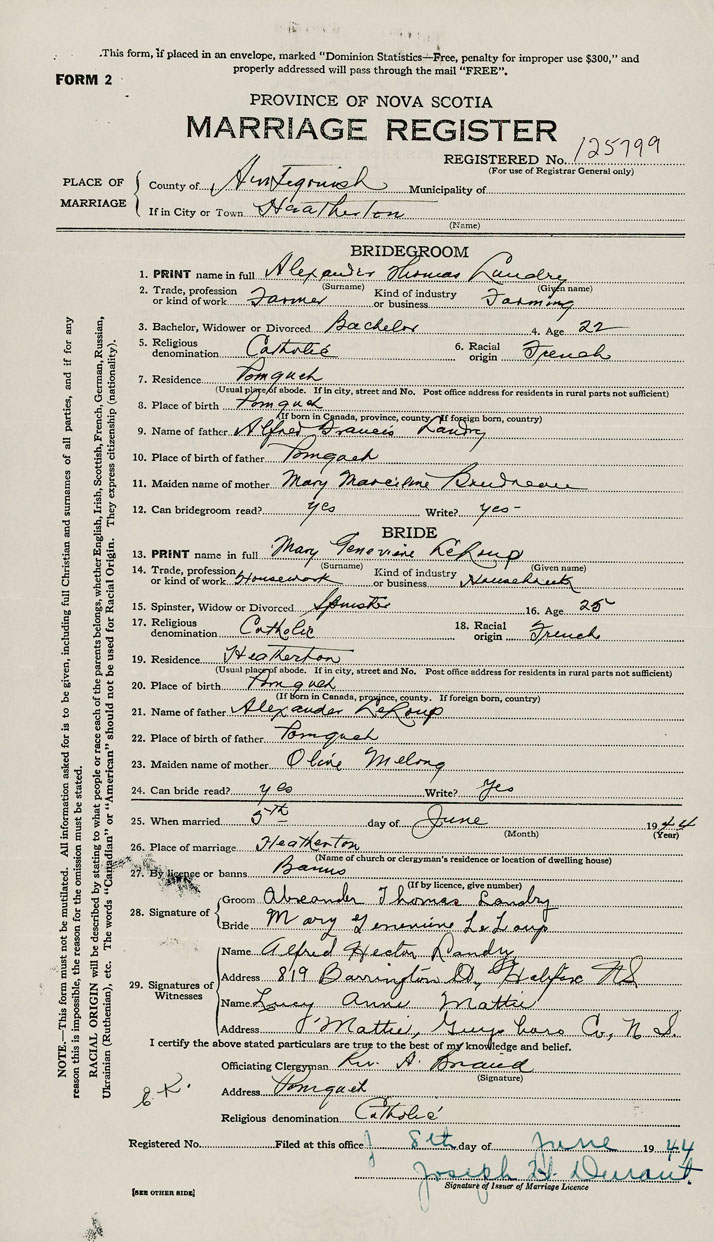 This form, if placed in an envelope, marked "Dominion Statistics—Free, penalty for improper use $300," and
properly addressed will pass through the mail "FREE".
FORM 2
PROVINCE OF NOVA SCOTIA
MARRIAGE REGISTER
REGISTERED No. 125799
(For use of Registrar General only)
PLACE OF MARRIAGE
County of Antigonish Municipality of
If in City or Town Heatherton
(Name)
BRIDEGROOM
1. PRINT name in full Alexander Thomas Landry
(Surname) (Given name)
2. Trade, profession or kind of work Farmer Kind of industry or business Farming
3. Bachelor, Widower or Divorced Bachelor 4. Age 22
5. Religious denomination Catholic 6. Racial origin French
7. Residence Pomquet
(Usual place of abode. If in city, street and No. Post office address for residents in rural parts not sufficient)
8. Place of birth Pomquet
(If born in Canada, province, county. If foreign born, country)
9. Name of father Alfred Francis Landry
10. Place of birth of father Pomquet
11. Maiden name of mother Mary
12. Can bridegroom read? yes Write? yes-
BRIDE
13. PRINT name in full Mary Genevieve LeRoup
(Surname) (Given name)
14. Trade, profession or kind of work Housework Kind of industry or business Housework
15. Spinster, Widow or Divorced Spinster 16. Age 25
17. Religious denomination Catholic 18. Racial origin French
19. Residence Heatherton
(Usual place of abode. If in city, street and No. Post office address for residents in rural parts not sufficient)
20. Place of birth Pomquet
(If born in Canada, province, county. If foreign born, country)
21. Name of father Alexander LeRoup
22. Place of birth of father Pomquet
23. Maiden name of mother Olive Melong
24. Can bride read? yes Write? Yes
25. When married 5th day of June 1944
(Month) (Year)
26. Place of marriage Heatherton
(Name of church or clergyman's residence or location of dwelling house)
27. By licence or banns Banns
(If by licence, give number)
28. Signature of
Groom Alexander Thomas Landry
Bride Mary Genevieve LeLoup
29. Signatures of Witnesses
Name Alfred Hector Landry
Address 819 Barrington St, Halifax NS
Name Lucy Anne Mattie
Address Mattie, Guysboro Co, N S.
I certify the above stated particulars are true to the best of my knowledge and belief.
Officiating Clergyman Rev. A.
(Signature)
Address Pomquet
Religious denomination Catholic
Registered No. Filed at this office 8th day of June 1944
Joseph H. Durant
Signature of Issuer of Marriage Licence
[SEE OTHER SIDE]
NOTE.—This form must not be mutilated. All information asked for is to be given, including full Christian and surnames of all parties, and if for any
reason this is impossible, the reason for the omission must be stated.
RACIAL ORIGIN will be described by stating to what people or race each of the parents belongs, whether English, Irish, Scottish, French, German, Russian,
Ukrainian (Ruthenian), etc. The words "Canadian" or "American" should not be used for Racial Origin. They express citizenship (nationality).